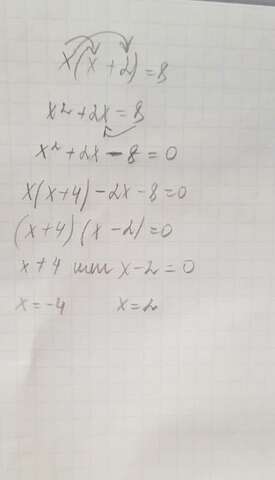 x(x+2)=8
x²+2x=8
x²+2x-8=0
x(x+4)-2x-8=0
(x+4)(x-2)=0
x+4 или x-2=0
x=-4 x=2